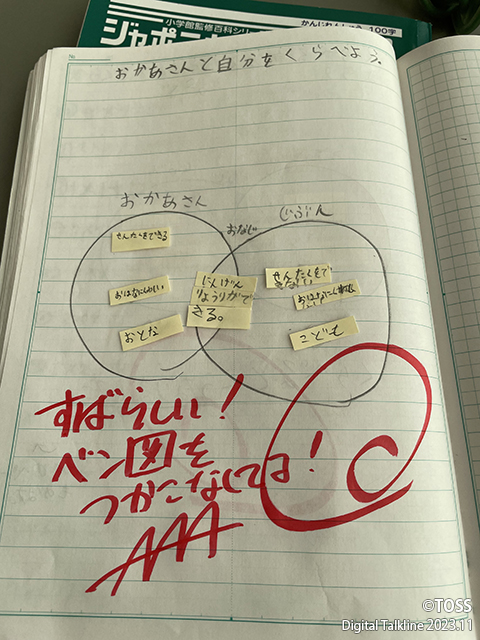 小学館監修百科シリ
かんじれんしゅう 100字
ジャポニ
おかあさんと自分をくらべよう。
おかあさん
おなじ
じぶん
せんたくをできる
おはなにくわしい
おとな
にんげん
りょうりがで
きる。
せんたくをで
きない
おはなにくわしく
こども
すばらしい!
ベン図を
つかいこなしてる!
AAA
©TOSS
Digital Talkline 2023.11